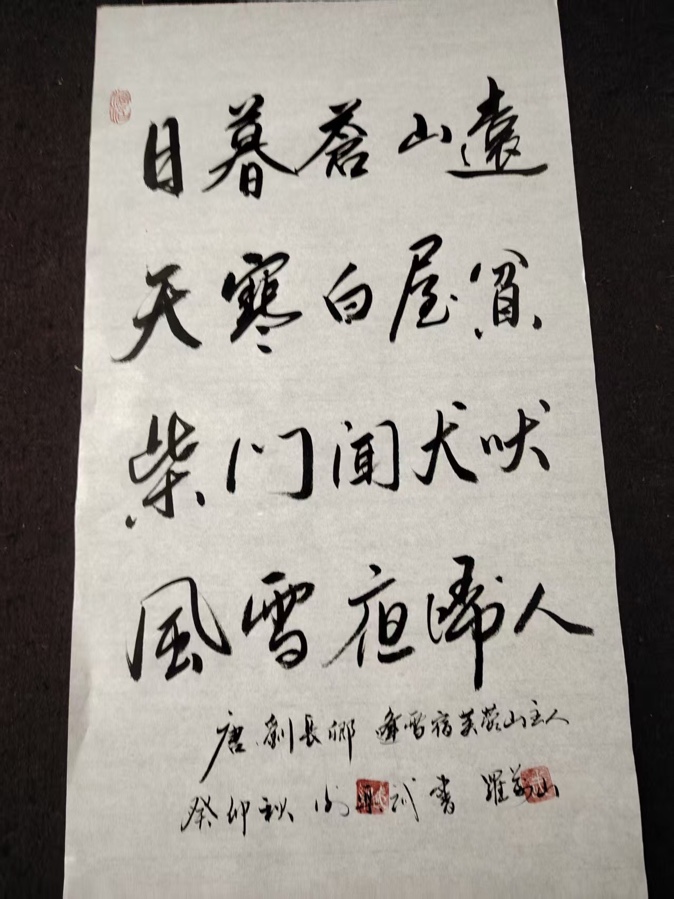 日暮蒼山遠
天寒白屋貧
柴門聞犬吠
風雪夜歸人
唐 劉長卿 逢雪宿芙蓉山主人
癸卯秋 書 羅